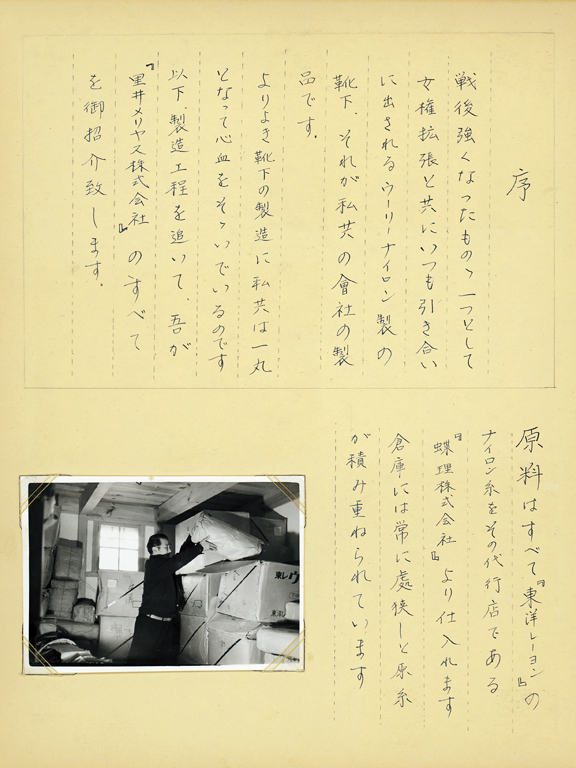 序
戦後強くなったものゝ一つとして
女権拡張と共にいつも引き合い
に出されるウーリーナイロン製の
靴下、それが私共の會社の製
品です。
よりよき靴下の製造に私共は一丸
となって心血をそゝいでいるのです
以下、製造工程を追いて、吾が
『里井メリヤス株式会社』のすべて
を御招介致します。
原料はすべて『東洋レーヨン』の
ナイロン糸をその代行店である
『蝶理株式会社』より仕入れます
倉庫には常に處狭しと原糸
が積み重ねられています
東レ
東洋レ